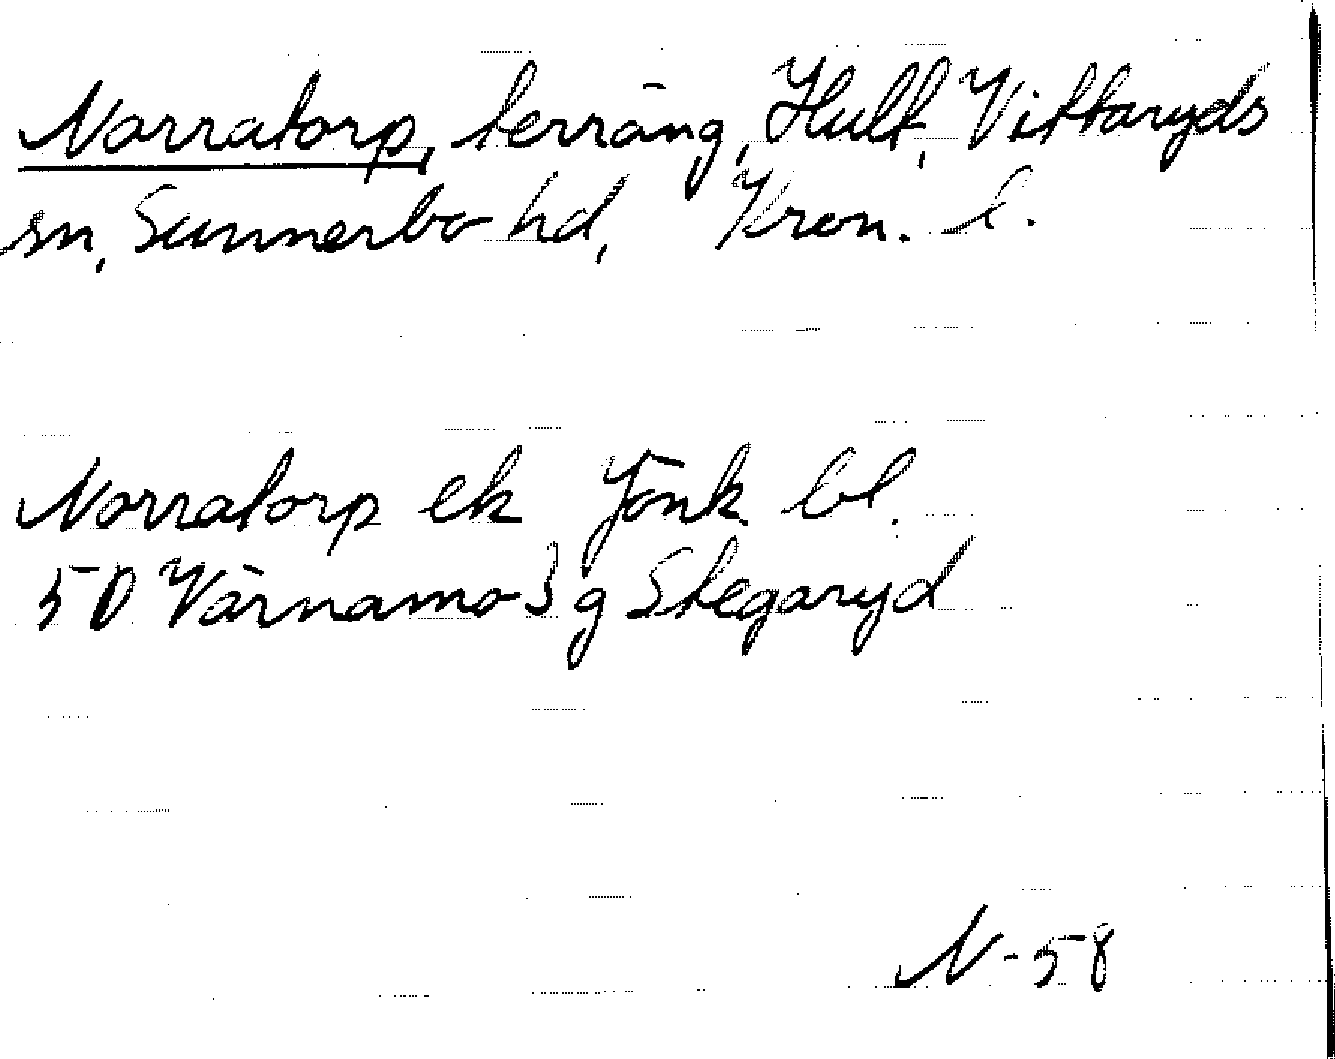 Norratorp, terräng, Hult, Vittaryds
sn, Sunnerbo hd, Kron. l.
Norratorp ek Jönk. bl.
5D Värnamo 3g Skegaryd
N-58